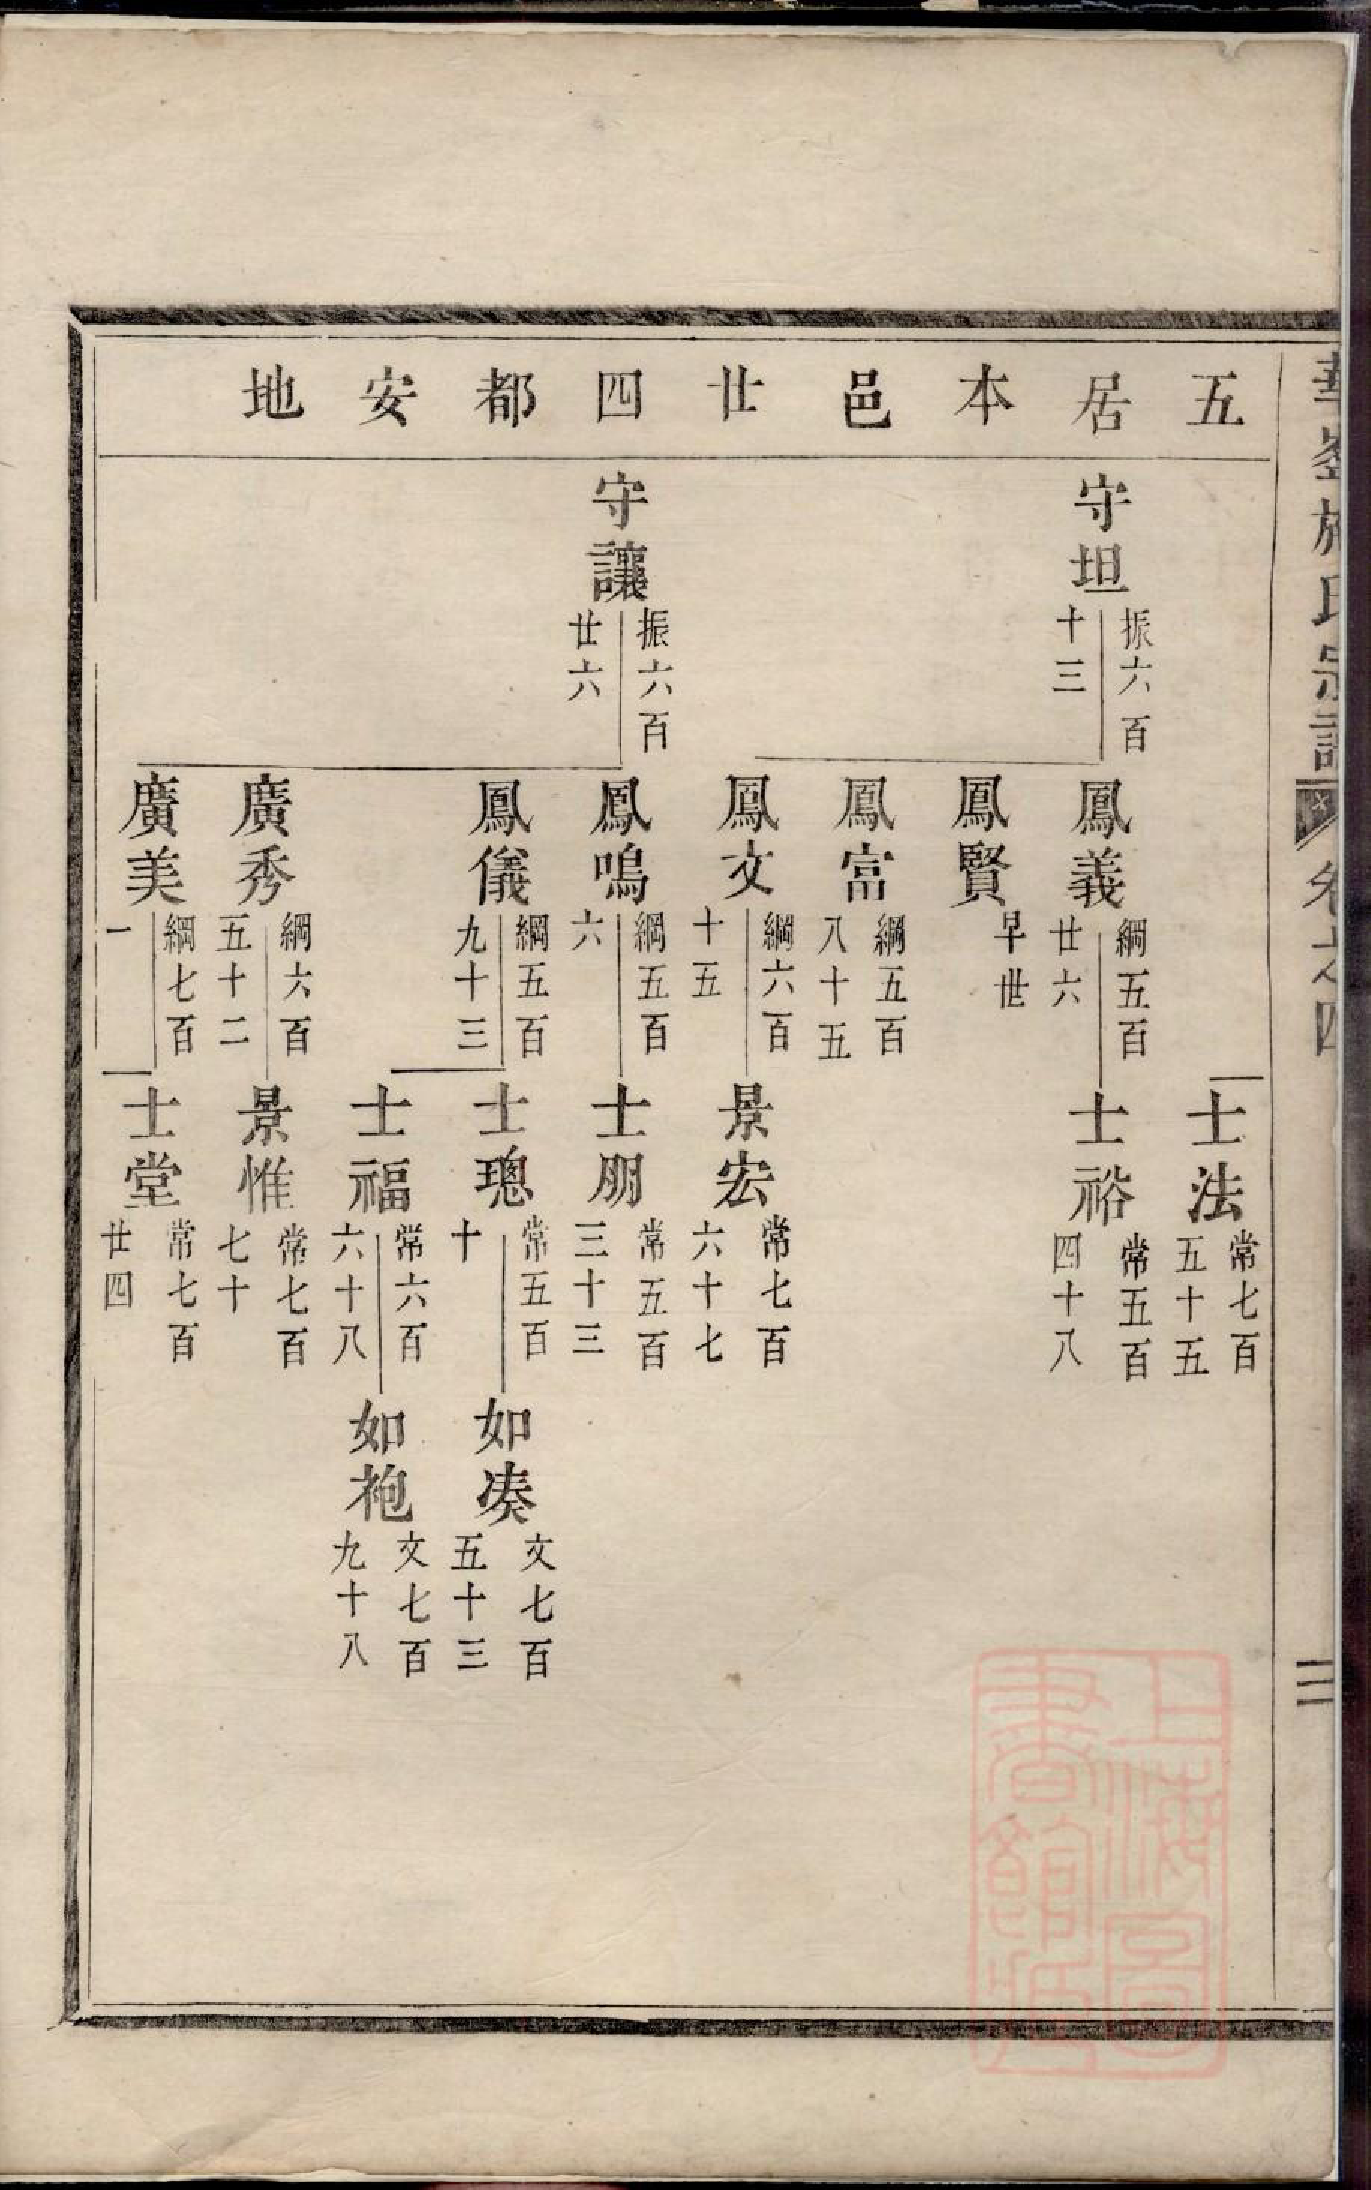 五居本邑廿四都安地
士法
常七百
五十五
守坦
振六百
十三
鳳義
綱五百
廿六
士裕
常五百
四十八
鳳賢
早世
鳳富
綱五百
八十五
鳳文
綱六百
十五
景宏
常七百
六十七
守讓
振六百
廿六
鳳鳴
綱五百
六
士朋
常五百
三十三
鳳儀
綱五百
九十三
士璁
常五百
十
如凑
文七百
五十三
士福
常六百
六十八
如袍
文七百
九十八
廣秀
綱六百
五十二
景惟
常七百
七十
廣美
綱七百
一
士堂
常七百
廿四
上海圖
書館藏